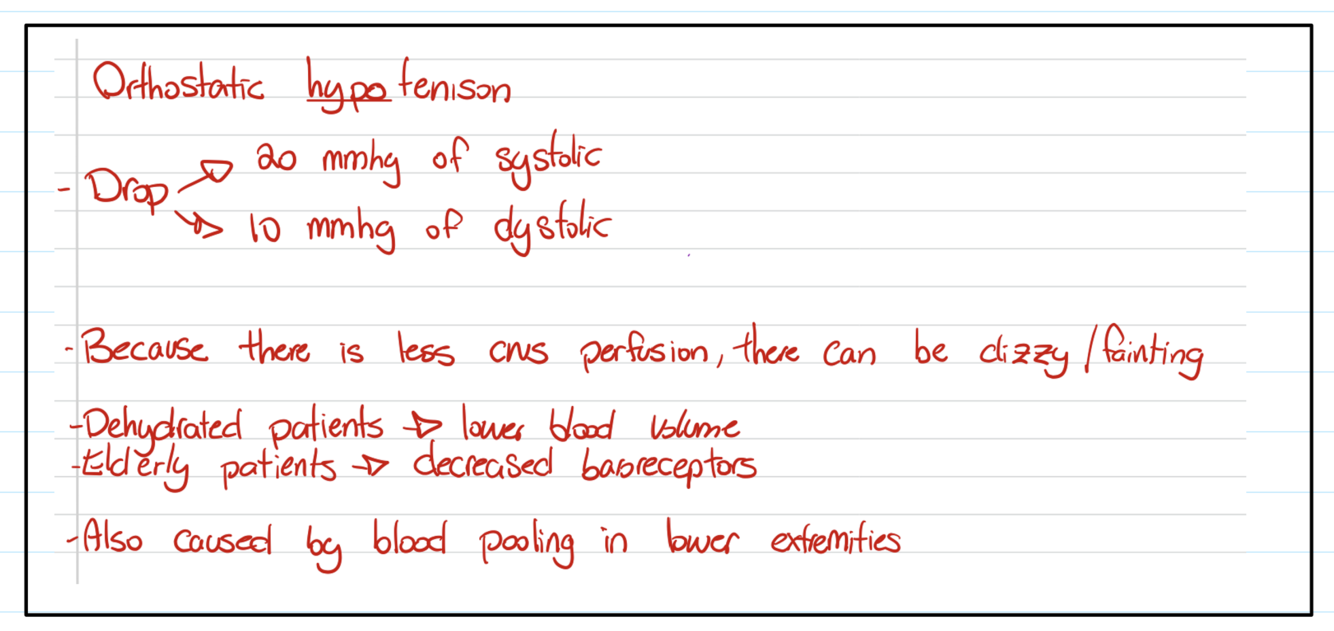 Orthostatic hypotenison
20 mmhg of systolic
- Drop
10 mmhg of dystolic
- Because there is less cns perfusion, there can be dizzy/fainting
- Dehydrated patients → lower blood volume
- Elderly patients → decreased baroreceptors
- Also caused by blood pooling in lower extremities